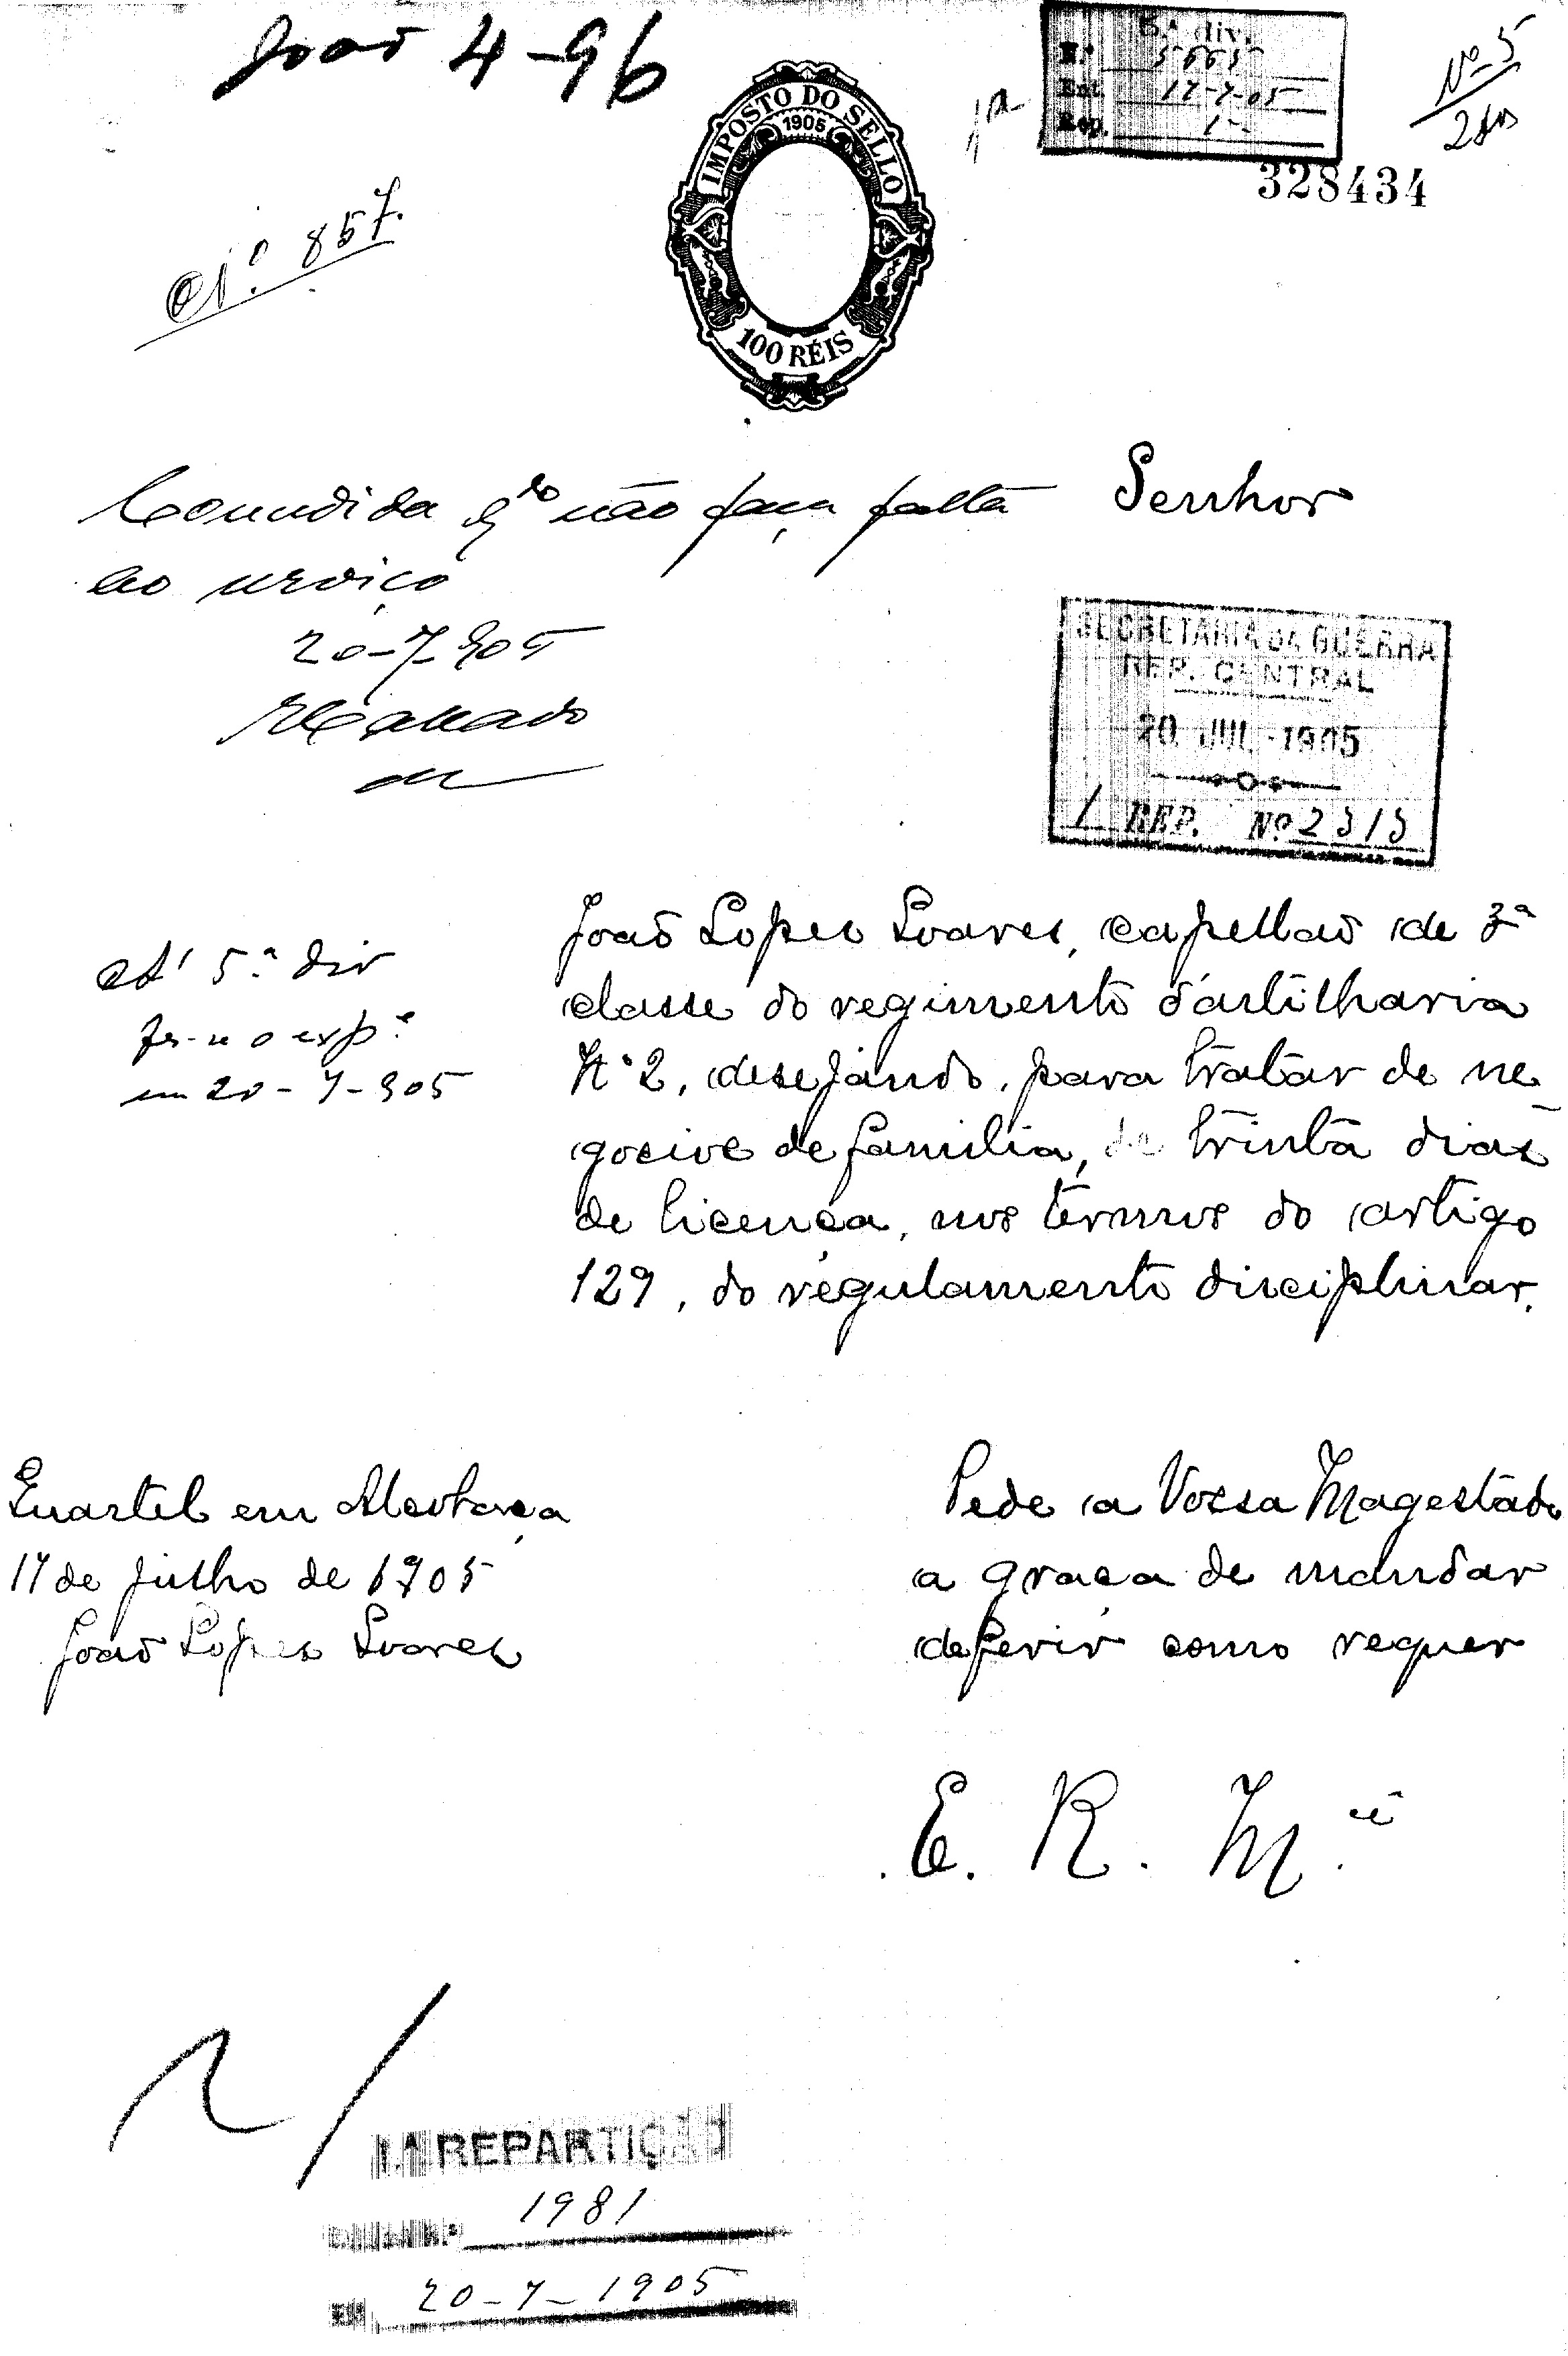 João 4-96
5.ª div.
N.º 5665
Ent. 17-7-05
Rep. 1
Nº 5
328434
IMPOSTO DO SELLO
1905
100 RÉIS
N.º 857.
Senhor
Concedida q.do não faça falta
ao serviço
20-7-905
SECRETARIA DA GUERRA
REP. CENTRAL
20 JUL 1905
1 REP. Nº 2515
Á 5.ª div
fez-se o exp.e
em 20-7-905
João Lopes Soares, capellão de 3ª
classe do regimento d'artilharia
Nº 2, desejando, para tratar de ne
gocios de familia, de trinta dias
de licença, nos termos do artigo
129, do regulamento disciplinar.
Quartel em Alcobaça
17 de Julho de 1905
João Lopes Soares
Pede a Vossa Magestade
a graça de mandar
deferir como requer
E. R. M.cê
1.ª REPARTIÇÃO
1981
EM 20-7-1905